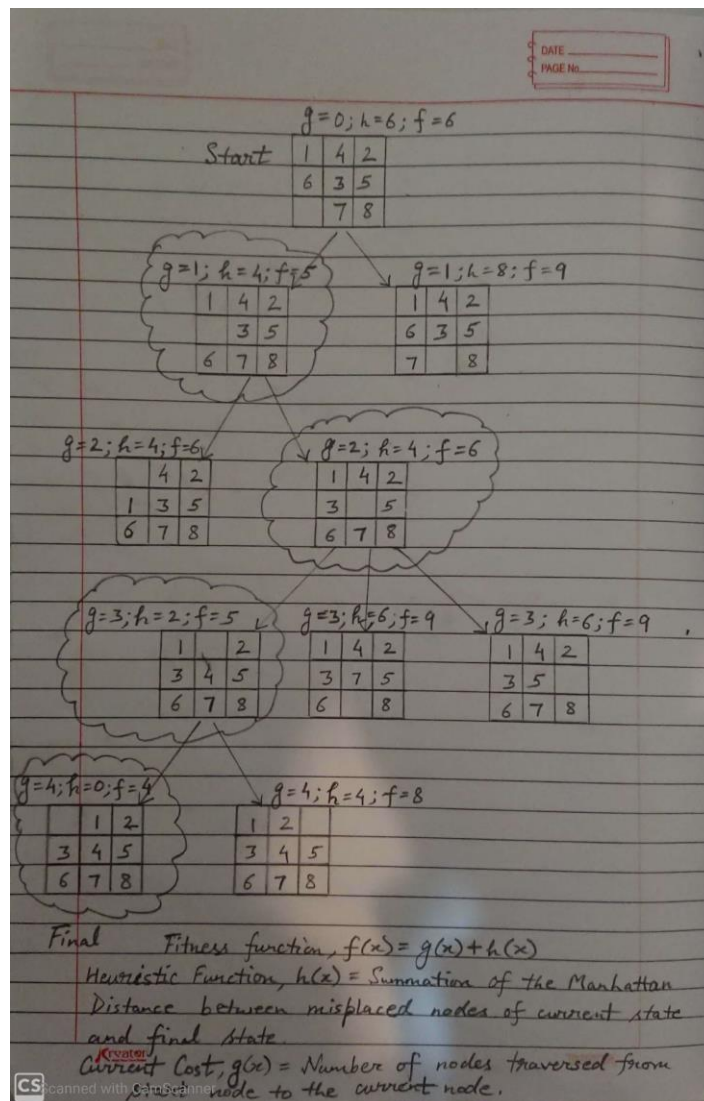 DATE
PAGE No.
g=0; h=6; f=6
Start
1 4 2
6 3 5
7 8
g=1; h=4; f=5
1 4 2
3 5
6 7 8
g=1; h=8; f=9
1 4 2
6 3 5
7 8
g=2; h=4; f=6
4 2
1 3 5
6 7 8
g=2; h=4; f=6
1 4 2
3 5
6 7 8
g=3; h=2; f=5
1 2
3 4 5
6 7 8
g=3; h=6; f=9
1 4 2
3 7 5
6 8
g=3; h=6; f=9
1 4 2
3 5
6 7 8
g=4; h=0; f=4
1 2
3 4 5
6 7 8
Final
g=4; h=4; f=8
1 2
3 4 5
6 7 8
Fitness function, f(x) = g(x) + h(x)
Heuristic Function, h(x) = Summation of the Manhattan
Distance between misplaced nodes of current state
and final state.
Creator
Current Cost, g(x) = Number of nodes traversed from
start node to the current node.
CS Scanned with CamScanner